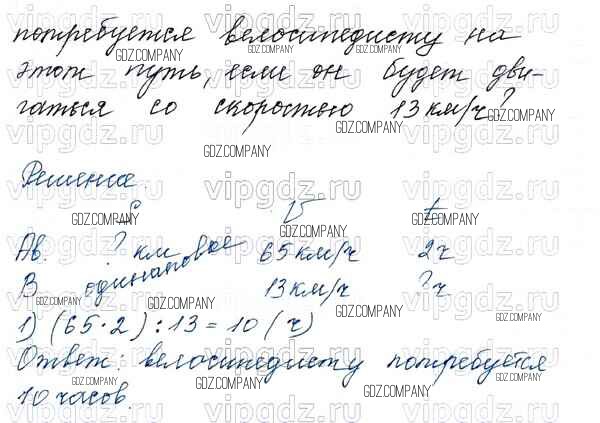 потребуется велосипедисту на
этот путь, если он будет дви-
гаться со скоростью 13 км/ч?
Решение.
S V t
Ав. ? км одинаковое 65 км/ч 2ч
В 13 км/ч ?ч
1) (65·2):13=10(ч)
Ответ: велосипедисту потребуется
10 часов.